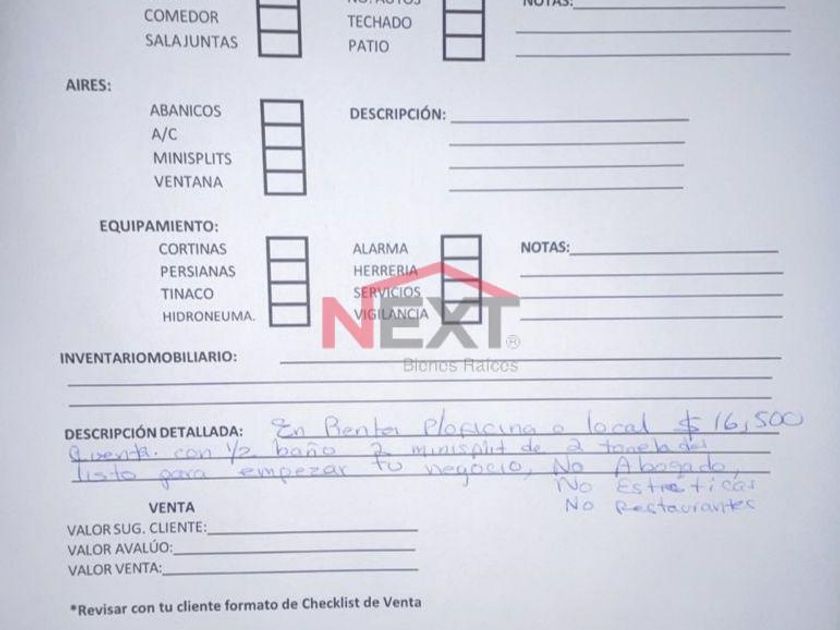 COMEDOR
TECHADO
NOTAS:
SALAJUNTAS
PATIO
AIRES:
ABANICOS
DESCRIPCIÓN:
A/C
MINISPLITS
VENTANA
EQUIPAMIENTO:
CORTINAS ALARMA NOTAS:
PERSIANAS HERRERIA
TINACO SERVICIOS
HIDRONEUMA. VIGILANCIA
NEXT®
Bienes Raíces
INVENTARIOMOBILIARIO:
DESCRIPCIÓN DETALLADA: En Renta P/oficina o local $16,500
con 1/2 baño 2 minisplit de 2 toneladas
listo para empezar tu negocio, No Abogado,
No Estéticas
No Restaurantes
VENTA
VALOR SUG. CLIENTE:
VALOR AVALÚO:
VALOR VENTA:
*Revisar con tu cliente formato de Checklist de Venta